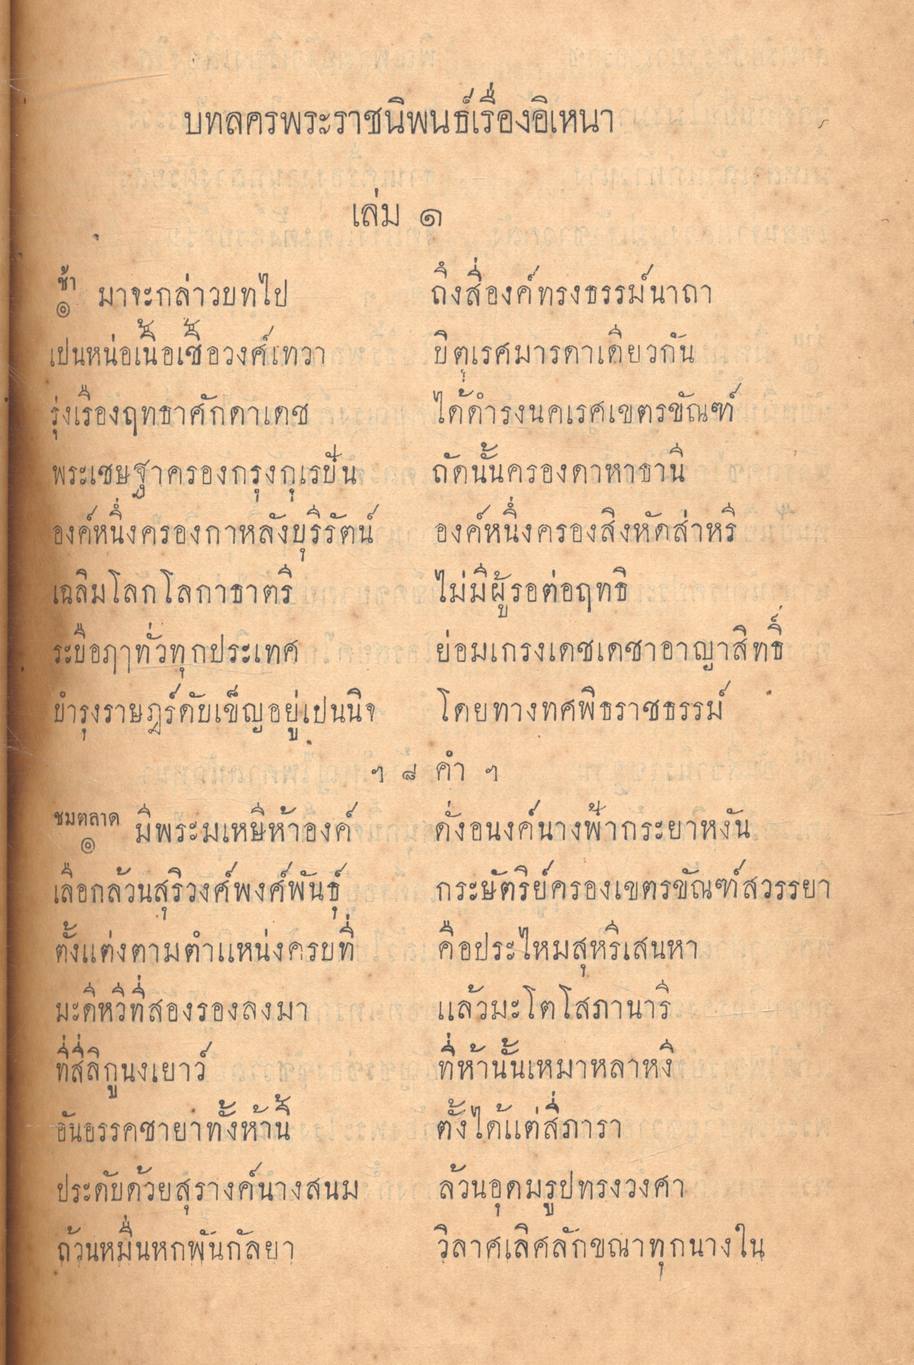 บทลครพระราชนิพนธ์เรื่องอิเหนา
เล่ม ๑
ช้า
๏ มาจะกล่าวบทไป ถึงสี่องค์ทรงธรรม์นาถา
เปนหน่อเนื้อเชื้อวงศ์เทวา บิตุเรศมารดาเดียวกัน
รุ่งเรืองฤทธาศักดาเดช ได้ดำรงนคเรศเขตรขัณฑ์
พระเชษฐาครองกรุงกุเรปัน ถัดนั้นครองดาหาธานี
องค์หนึ่งครองกาหลังบุรีรัตน์ องค์หนึ่งครองสิงหัดส่าหรี
เฉลิมโลกโลกาธาตรี ไม่มีผู้รอต่อฤทธิ
ระบือฦๅทั่วทุกประเทศ ย่อมเกรงเดชเดชาอาญาสิทธิ์
บำรุงราษฎร์ดับเข็ญอยู่เปนนิจ โดยทางทศพิธราชธรรม์
ฯ ๘ คำ ฯ
ชมตลาด
๏ มีพระมเหษีห้าองค์ ดั่งอนงค์นางฟ้ากระยาหงัน
เลือกล้วนสุริวงศ์พงศ์พันธุ์ กระษัตริย์ครองเขตรขัณฑ์สวรรยา
ตั้งแต่งตามตำแหน่งครบที่ คือประไหมสุหรีเสนหา
มะดีหวีที่สองรองลงมา แล้วมะโตโสภานารี
ที่สี่ลิกูนงเยาว์ ที่ห้านั้นเหมาหลาหงี
อันอรรคชายาทั้งห้านี้ ตั้งได้แต่สี่ภารา
ประดับด้วยสุรางค์นางสนม ล้วนอุดมรูปทรงวงศา
ถ้วนหมื่นหกพันกัลยา วิลาศเลิศลักขณาทุกนางใน